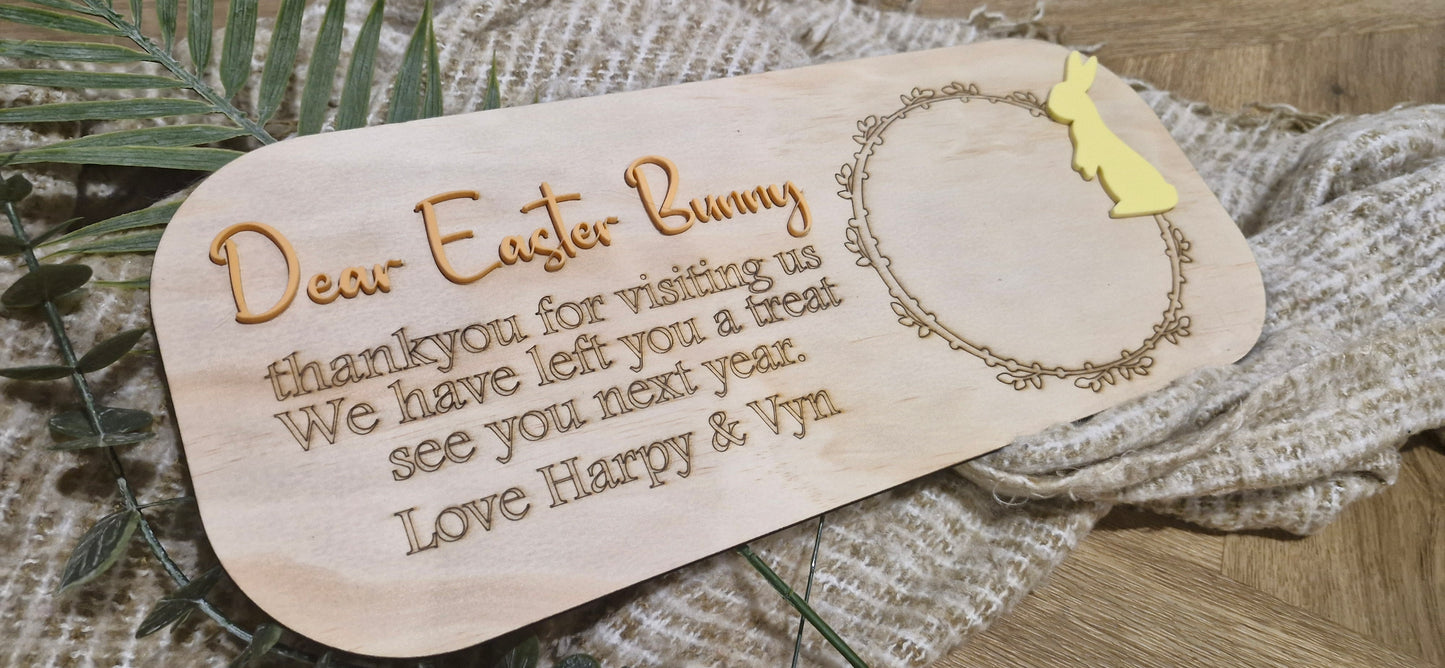 Dear Easter Bunny
thankyou for visiting us
We have left you a treat
see you next year.
Love Harpy & Vyn